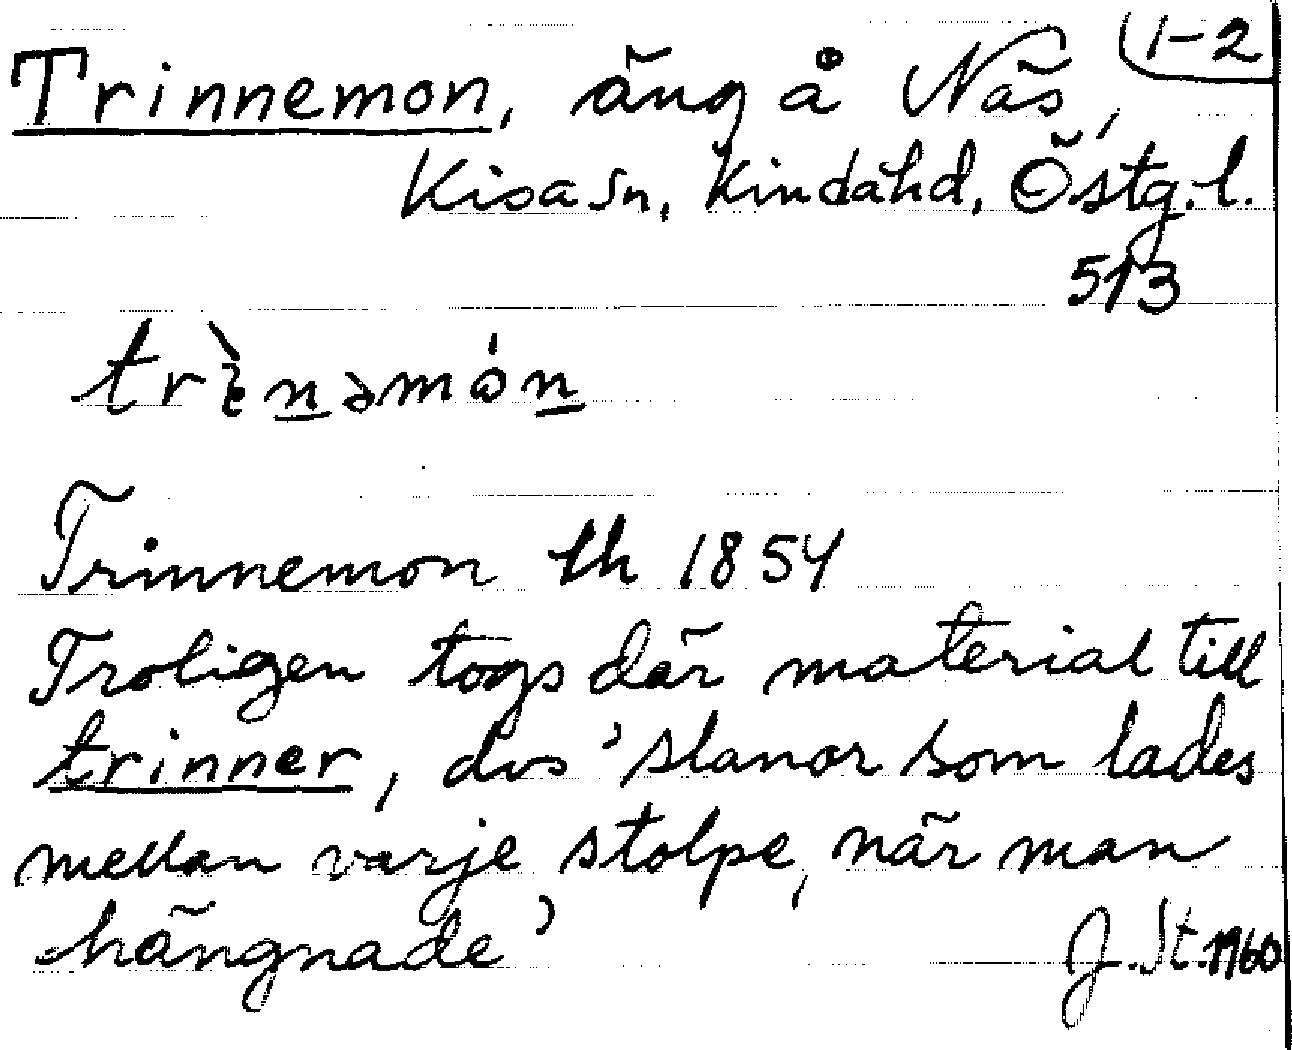 1-2
Trinnemon, äng å Näs,
Kisa sn, Kinda hd, Östg. l.
513
trɛ̀nəmón
Trinnemon lh 1854
Troligen togs där material till
trinner, dvs 'slanor som lades
mellan varje stolpe, när man
hängnade'
J. St. 1960